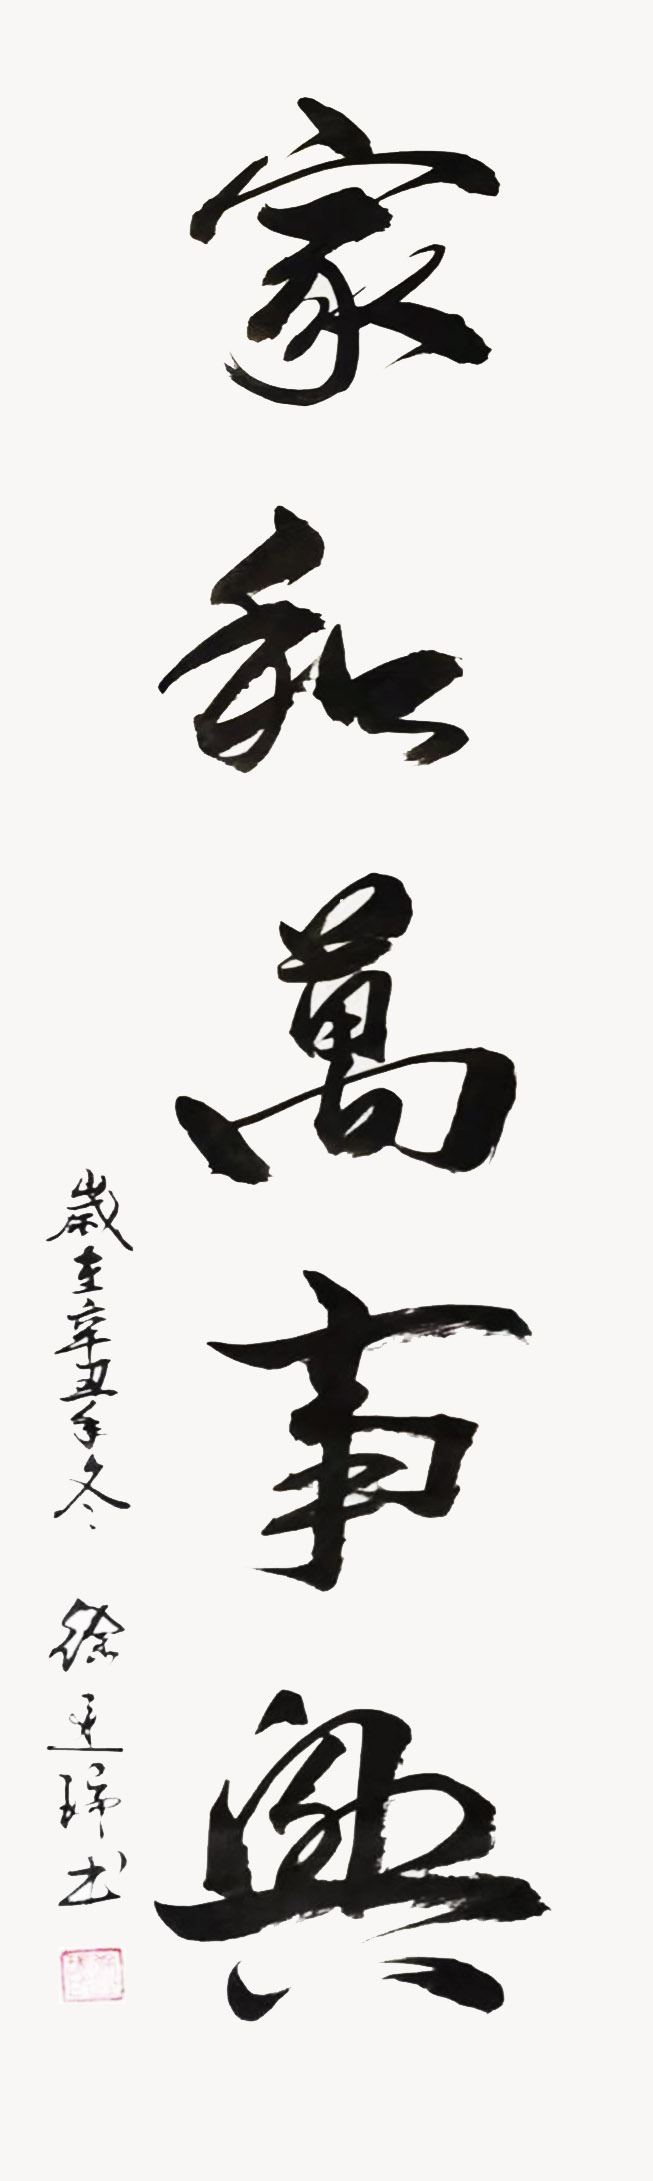 家和萬事興
歲在辛丑年冬 徐達瑞书